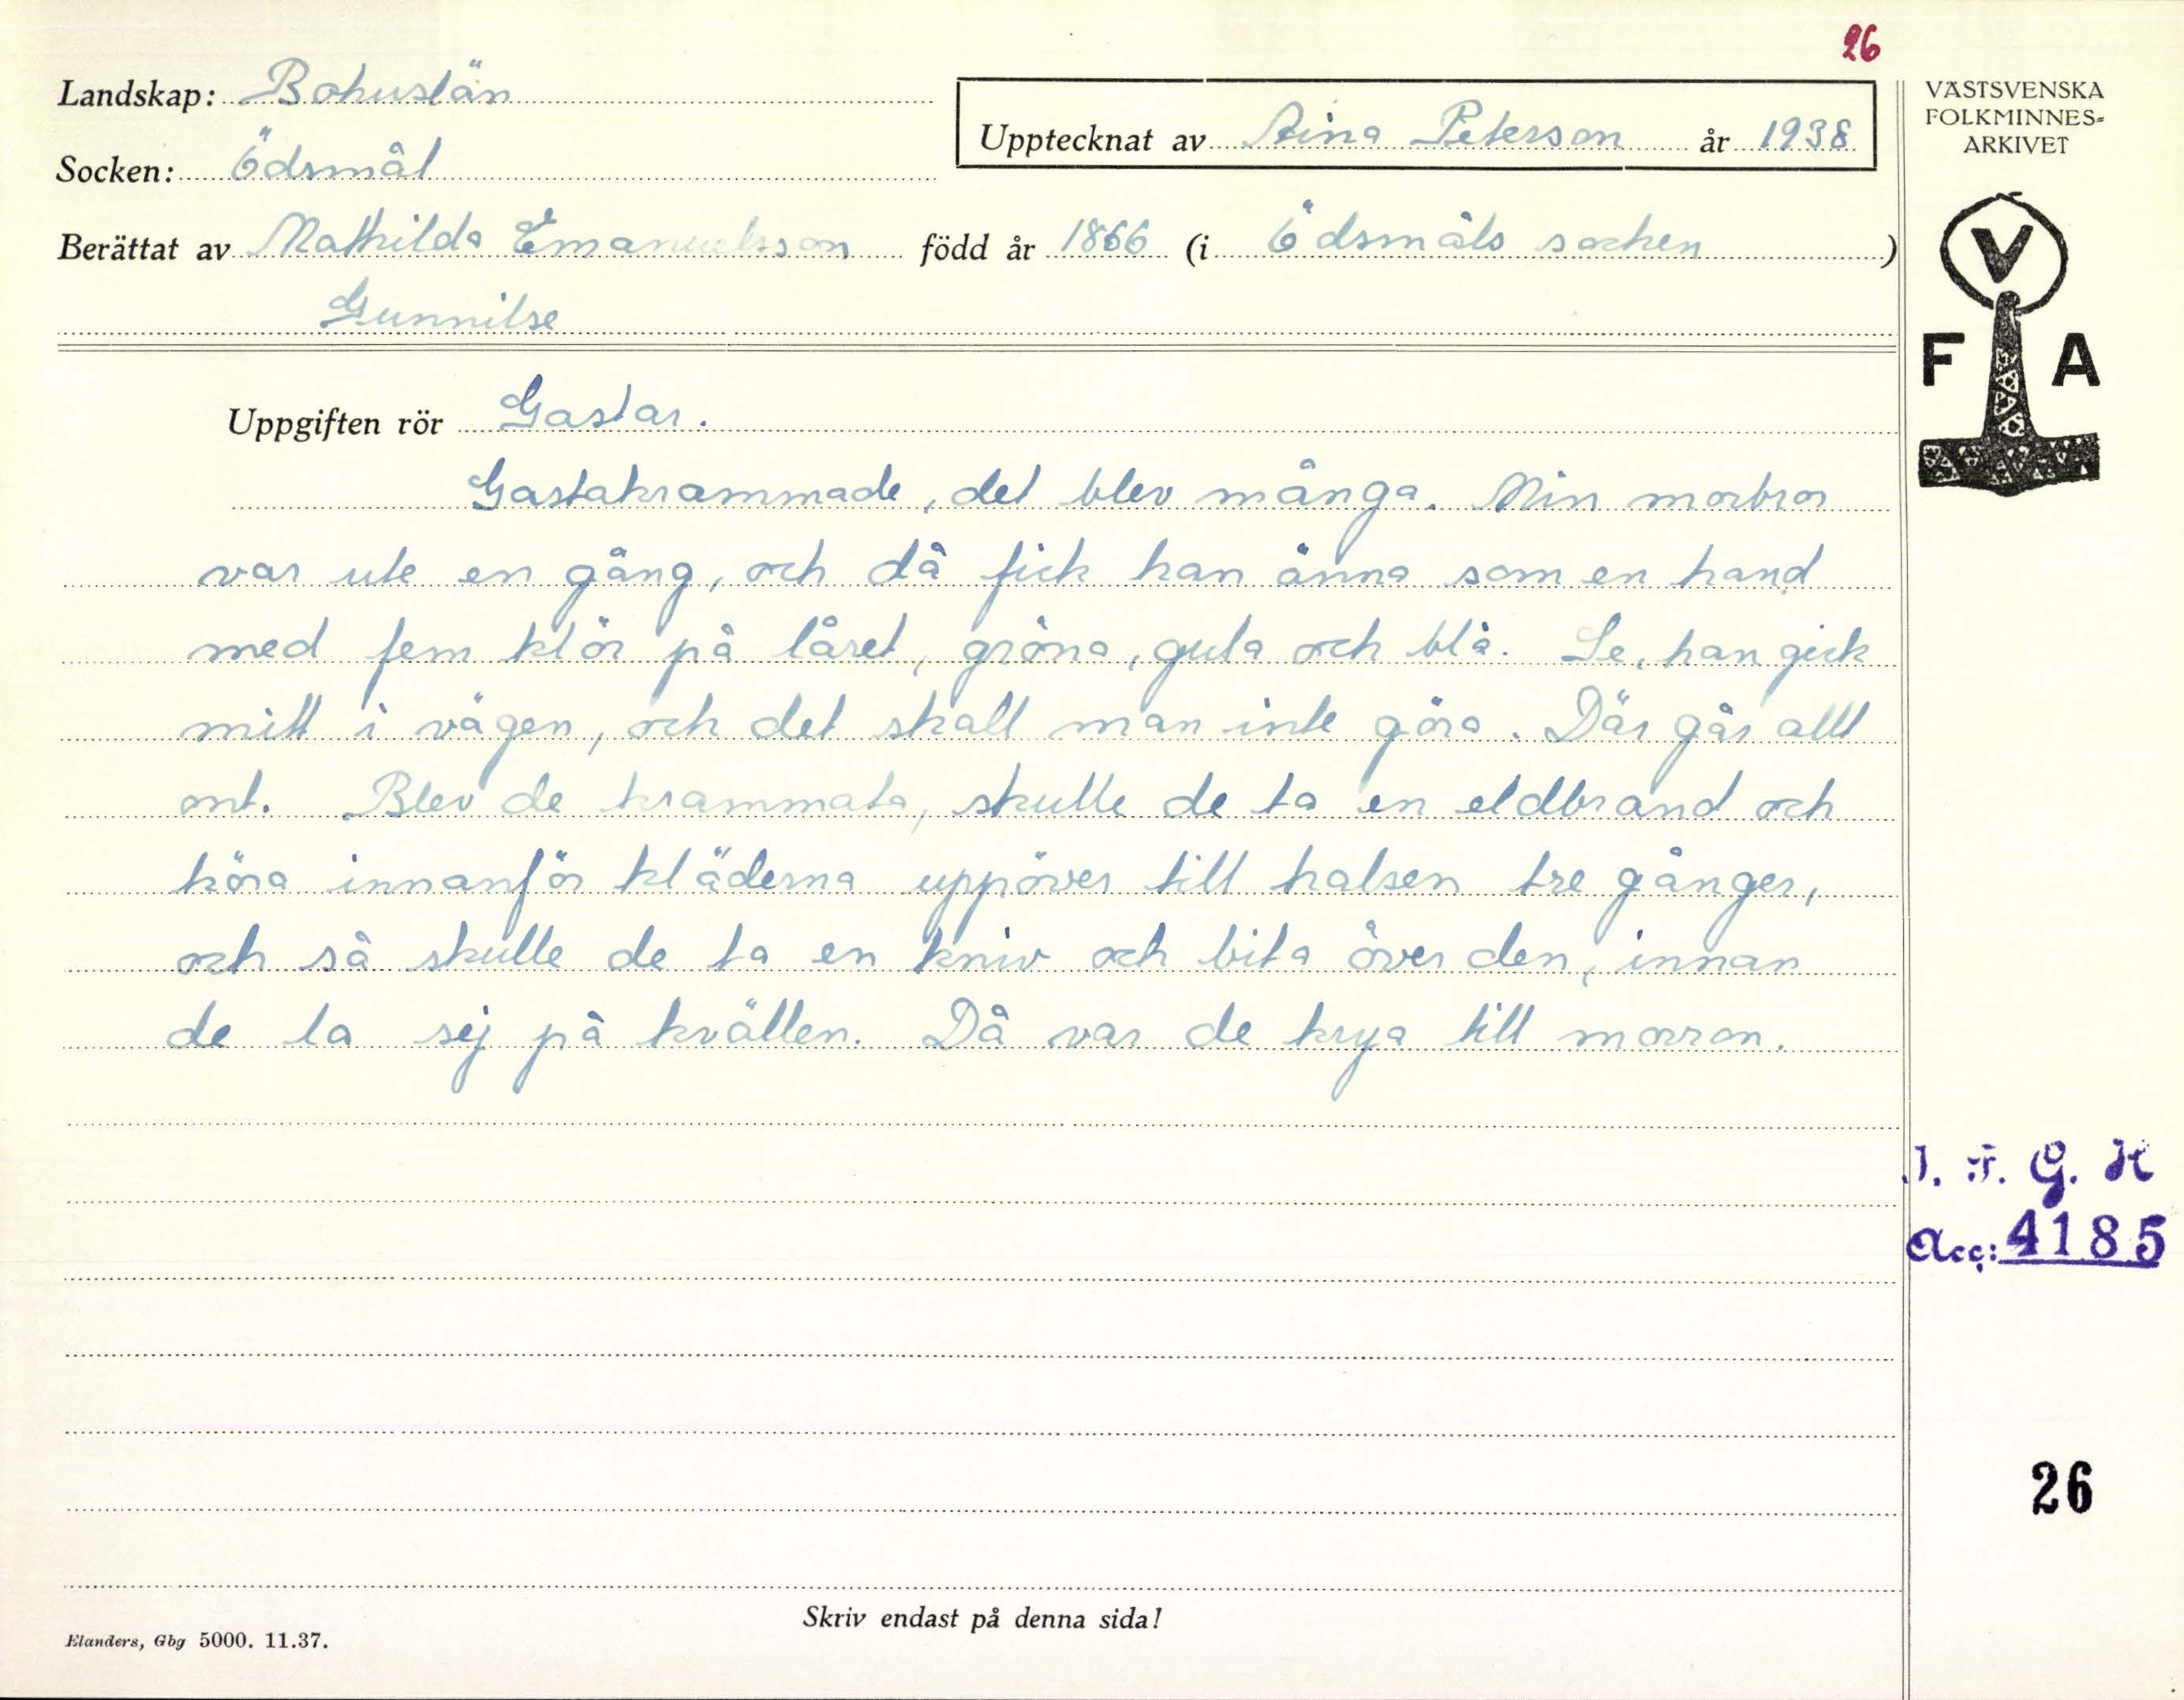 26
Landskap: Bohuslän
Upptecknat av Aina Peterson år 1938
Socken: Ödsmål
Berättat av Mathilda Emanuelsson född år 1866 (i Ödsmåls socken)
Gunnilse
VÄSTSVENSKA
FOLKMINNES=
ARKIVET
V
F A
Uppgiften rör Gastar.
Gastakrammade, det blev många. Min morbror
var ute en gång, och då fick han änna som en hand
med fem klör på låret, gröna, gula och blå. Se, han gick
mitt i vägen, och det skall man inte göra. Där går allt
ont. Blev de krammata, skulle de ta en eldbrand och
köra innanför kläderna uppöver till halsen tre gånger,
och så skulle de ta en kniv och bita över den, innan
de la sej på kvällen. Då var de krya till morron.
I. F. G. H
Acc: 4185
26
Skriv endast på denna sida!
Elanders, Gbg 5000. 11.37.